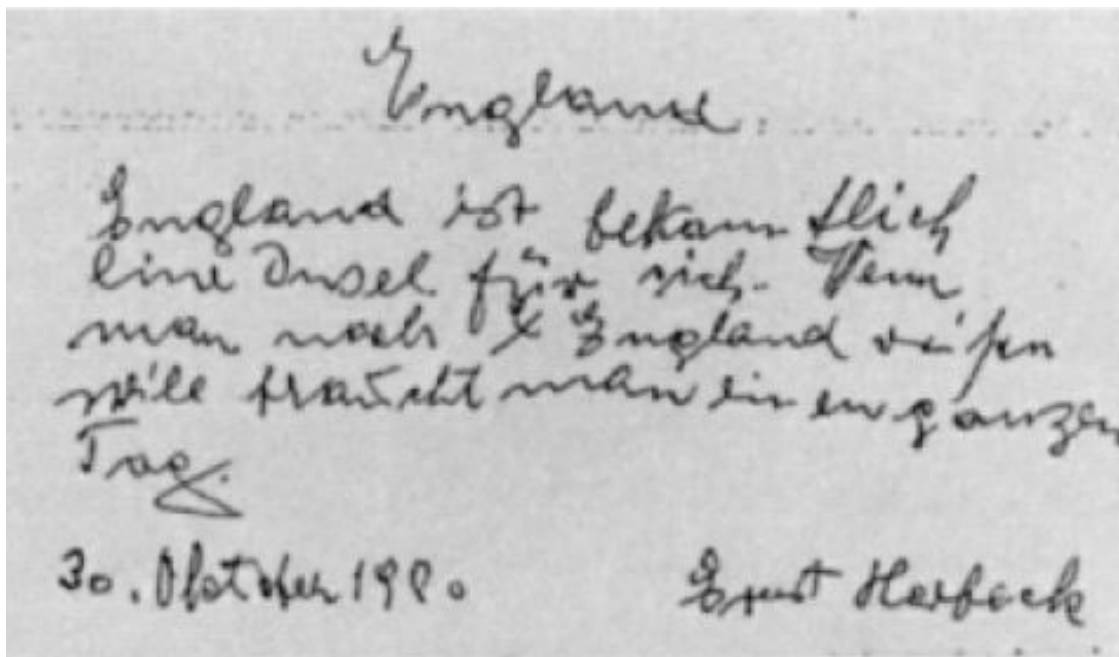 England
England ist bekanntlich
eine Insel für sich. Wenn
man nach England reisen
will braucht man einen ganzen
Tag.
30. Oktober 1980
Ernst Herbeck